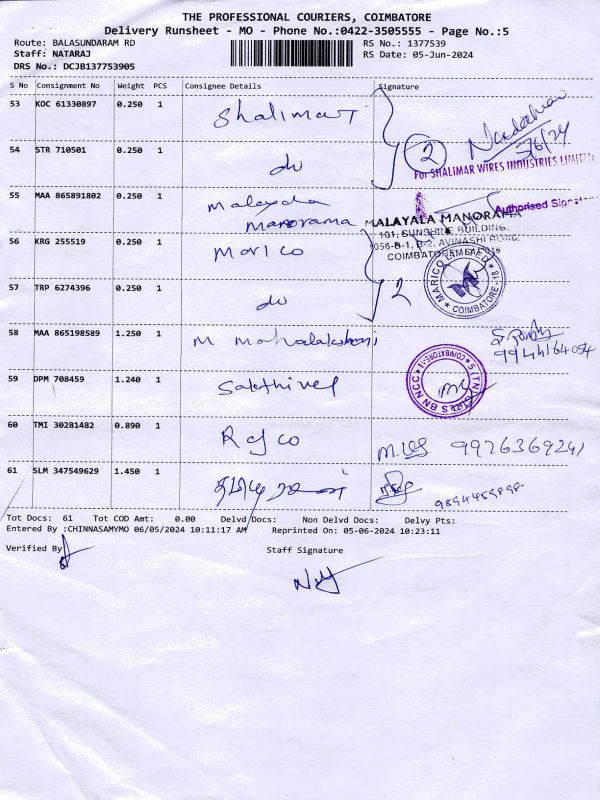 THE PROFESSIONAL COURIERS, COIMBATORE
Delivery Runsheet - MO - Phone No.:0422-3505555 - Page No.:5
Route: BALASUNDARAM RD
Staff: NATARAJ
DRS No.: DCJB137753905
RS No.: 1377539
RS Date: 05-Jun-2024
S No Consignment No Weight PCS Consignee Details Signature
53 KOC 61330897 0.250 1 Shalimar
5/6/24
54 STR 710501 0.250 1 do 2
For SHALIMAR WIRES INDUSTRIES LIMITED
55 MAA 865891802 0.250 1 Malayala
Manorama
Authorised Signatory
MALAYALA MANORAMA
101, SUNSHINE BUILDING,
1056-B-1, B-2, AVINASHI ROAD,
COIMBATORE
56 KRG 255519 0.250 1 Marico
MARICO LIMITED * COIMBATORE-18 *
57 TRP 6274396 0.250 1 do 2
58 MAA 865198589 1.250 1 M Mahalakshmi
9944164054
59 DPM 708459 1.240 1 Sakthivel
5 (TN) GIRLS BN NCC * COIMBATORE-18 *
60 TMI 30281482 0.890 1 Rafco 9926369241
61 SLM 347549629 1.450 1
Tot Docs: 61 Tot COD Amt: 0.00 Delvd Docs: Non Delvd Docs: Delvy Pts:
Entered By :CHINNASAMYMO 06/05/2024 10:11:17 AM Reprinted On: 05-06-2024 10:23:11
Verified By Staff Signature